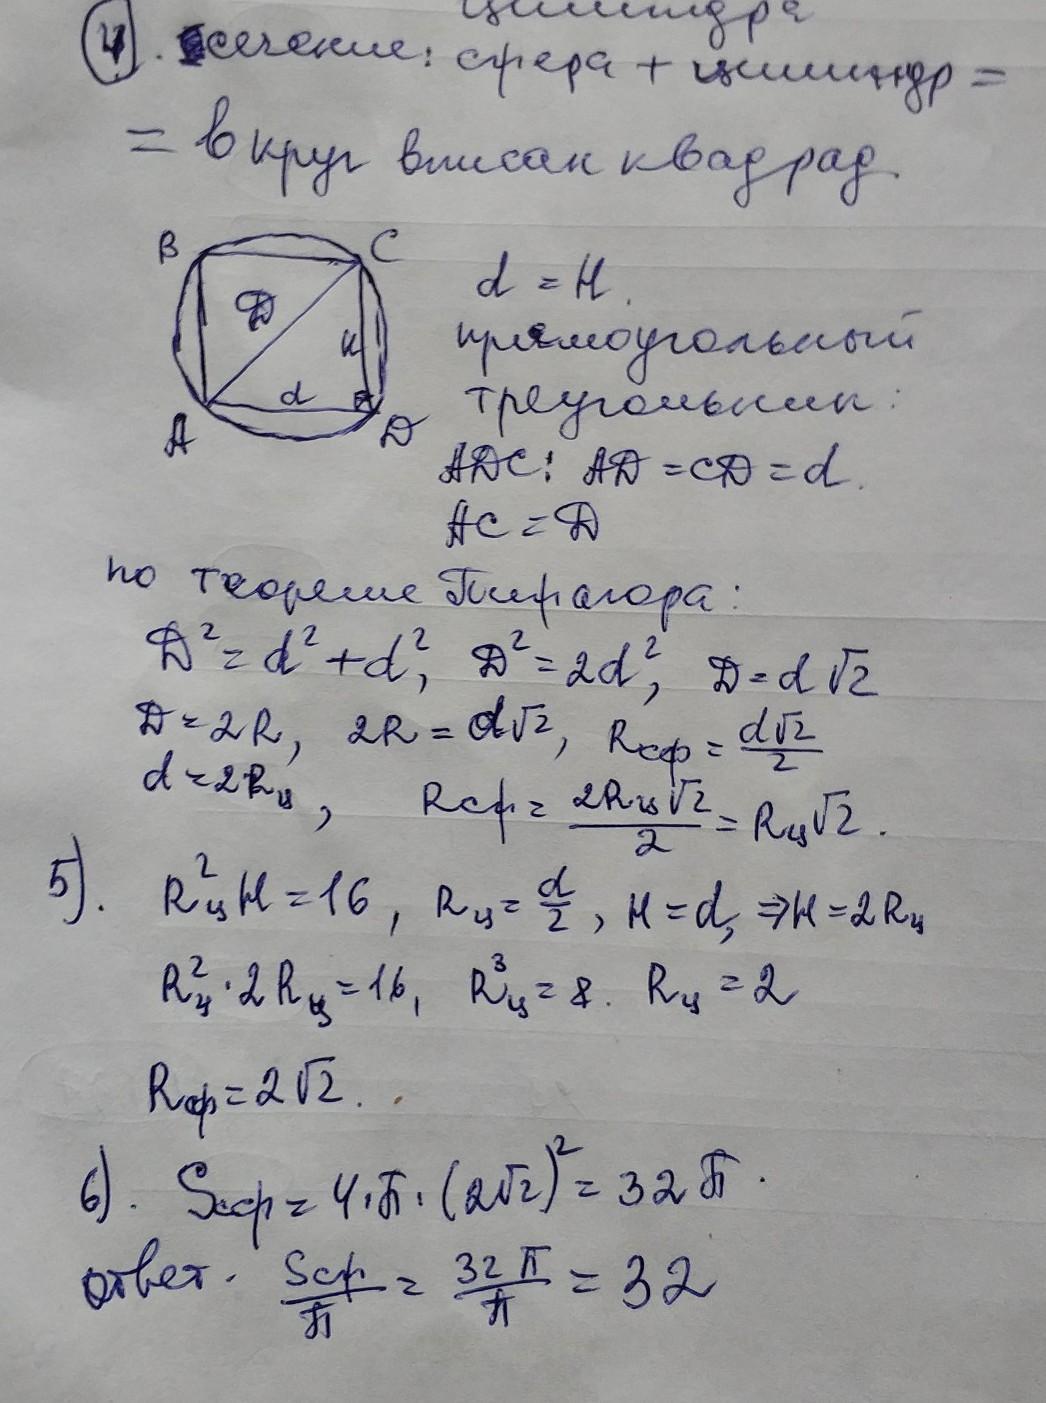 цилиндра
4. сечение: сфера + цилиндр =
= в круг вписан квадрад.
B C
D
H
d
A D
d = H.
прямоугольный
треугольник:
ADC: AD = CD = d.
AC = D
по теореме Пифагора:
D² = d² + d², D² = 2d², D = d√2
D = 2R, 2R = d√2, Rсф = d√2/2
d = 2Rц, Rсф = 2Rц√2/2 = Rц√2.
5). R²цH = 16, Rц = d/2, H = d, ⇒ H = 2Rц
R²ц · 2Rц = 16, R³ц = 8. Rц = 2
Rсф = 2√2.
6). Sсф = 4·П·(2√2)² = 32П.
ответ. Sсф/П = 32П/П = 32